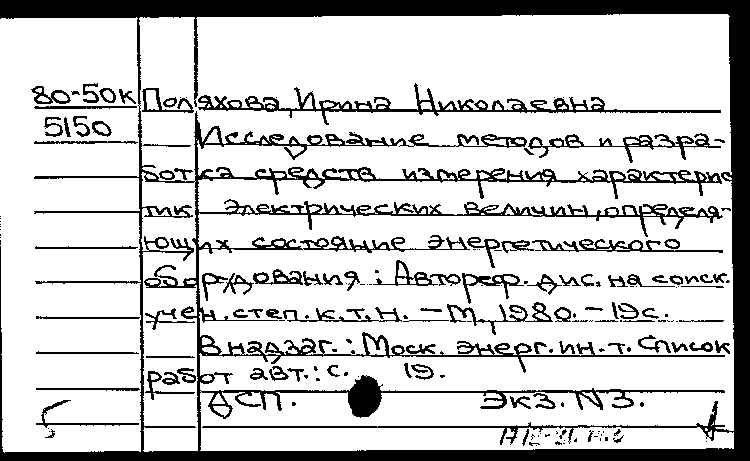 80-50к Поляхова, Ирина Николаевна.
5150 Исследование методов и разра-
ботка средств измерения характерис
тик электрических величин, определя-
ющих состояние энергетического
оборудования : Автореф. дис. на соиск.
учен. степ. к.т.н. - М., 1980. - 19с.
В надзаг.: Моск. энерг. ин-т. Список
работ авт.: с. 19.
ДСП. Экз. N3.